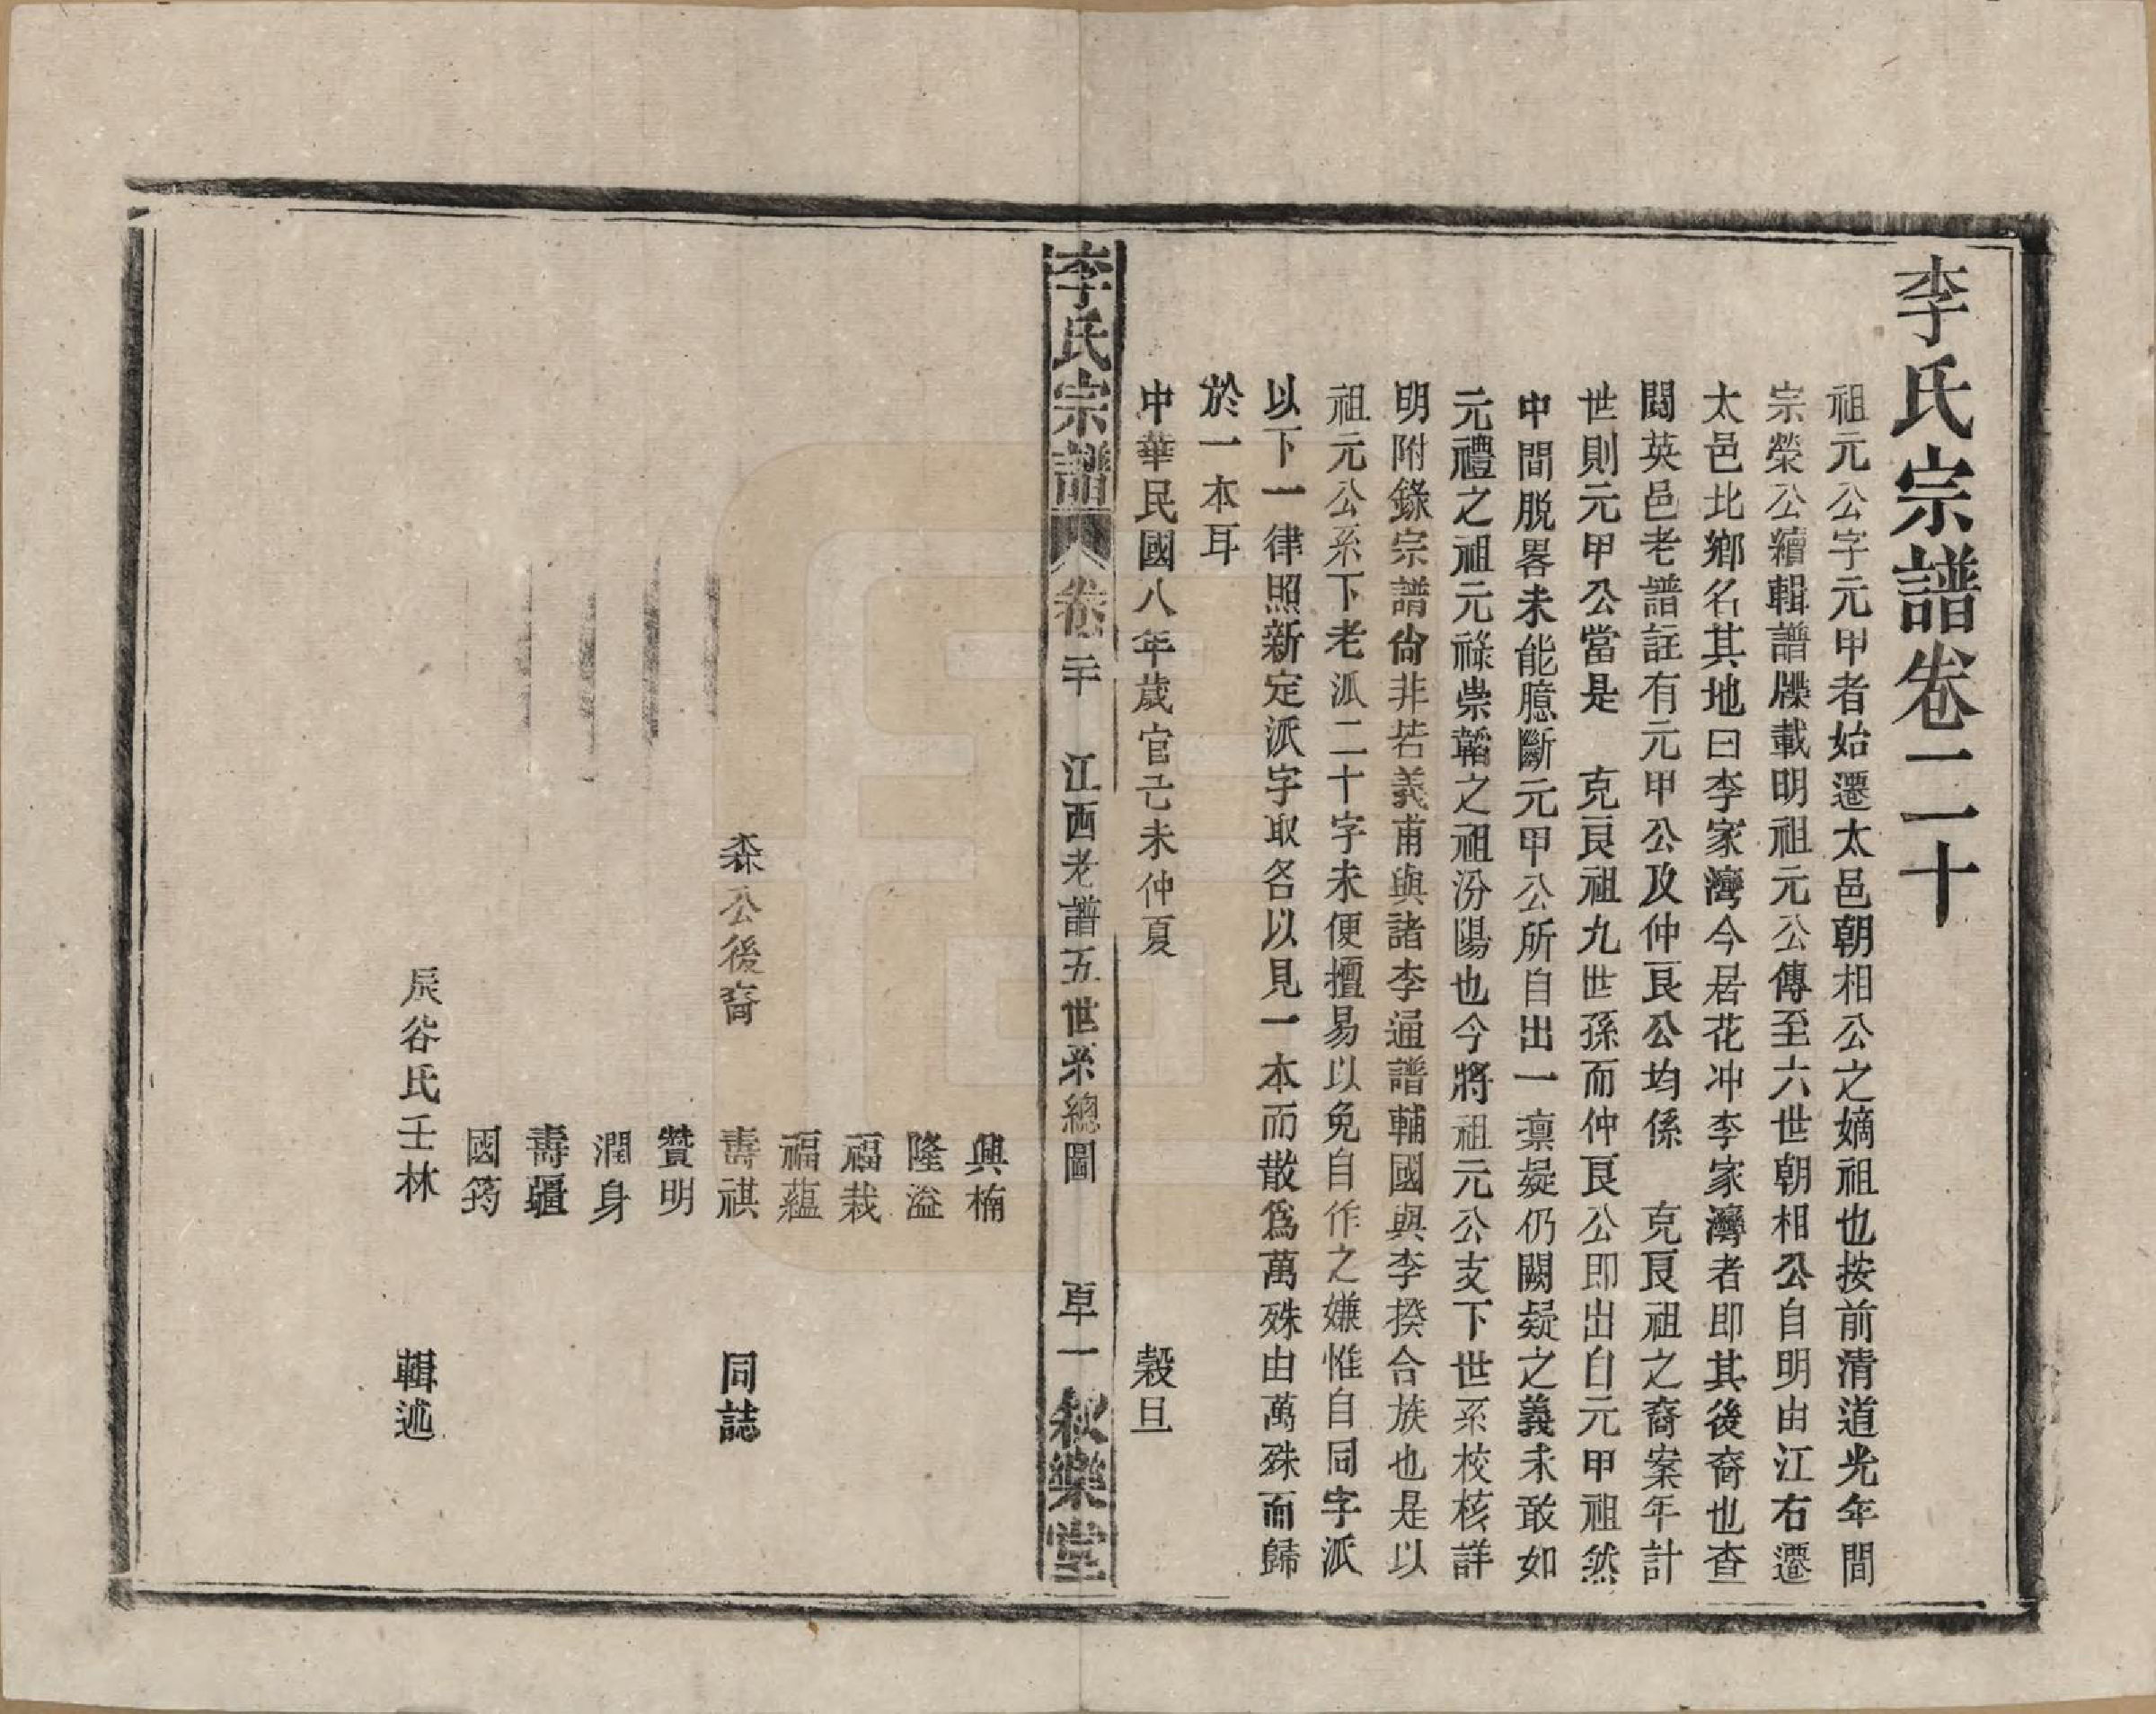 李氏宗譜卷二十
祖元公字元甲者始遷太邑朝相公之嫡祖也按前清道光年間
宗榮公續輯譜牒載明祖元公傳至六世朝相公自明由江右遷
太邑北鄉名其地曰李家灣今居花冲李家灣者即其後裔也查
閱英邑老譜註有元甲公及仲良公均係　克良祖之裔案年計
世則元甲公當是　克良祖九世孫而仲良公即出自元甲祖然
中間脱畧未能臆斷元甲公所自出一稟疑仍闕疑之義未敢如
元禮之祖元祿崇韜之祖汾陽也今將祖元公支下世系校核詳
明附錄宗譜尙非若義甫與諸李通譜輔國與李揆合族也是以
祖元公系下老派二十字未便擅易以免自作之嫌惟自同字派
以下一律照新定派字取名以見一本而散爲萬殊由萬殊而歸
於一本耳
中華民國八年歲官己未仲夏　穀旦
李氏宗譜　卷二十　江西老譜五世系總圖　卓一　敘樂堂
興楠
隆溢
福栽
福蘊
森公後裔　壽祺　同誌
贊明
潤身
壽疆
國筠
辰谷氏壬林　輯述